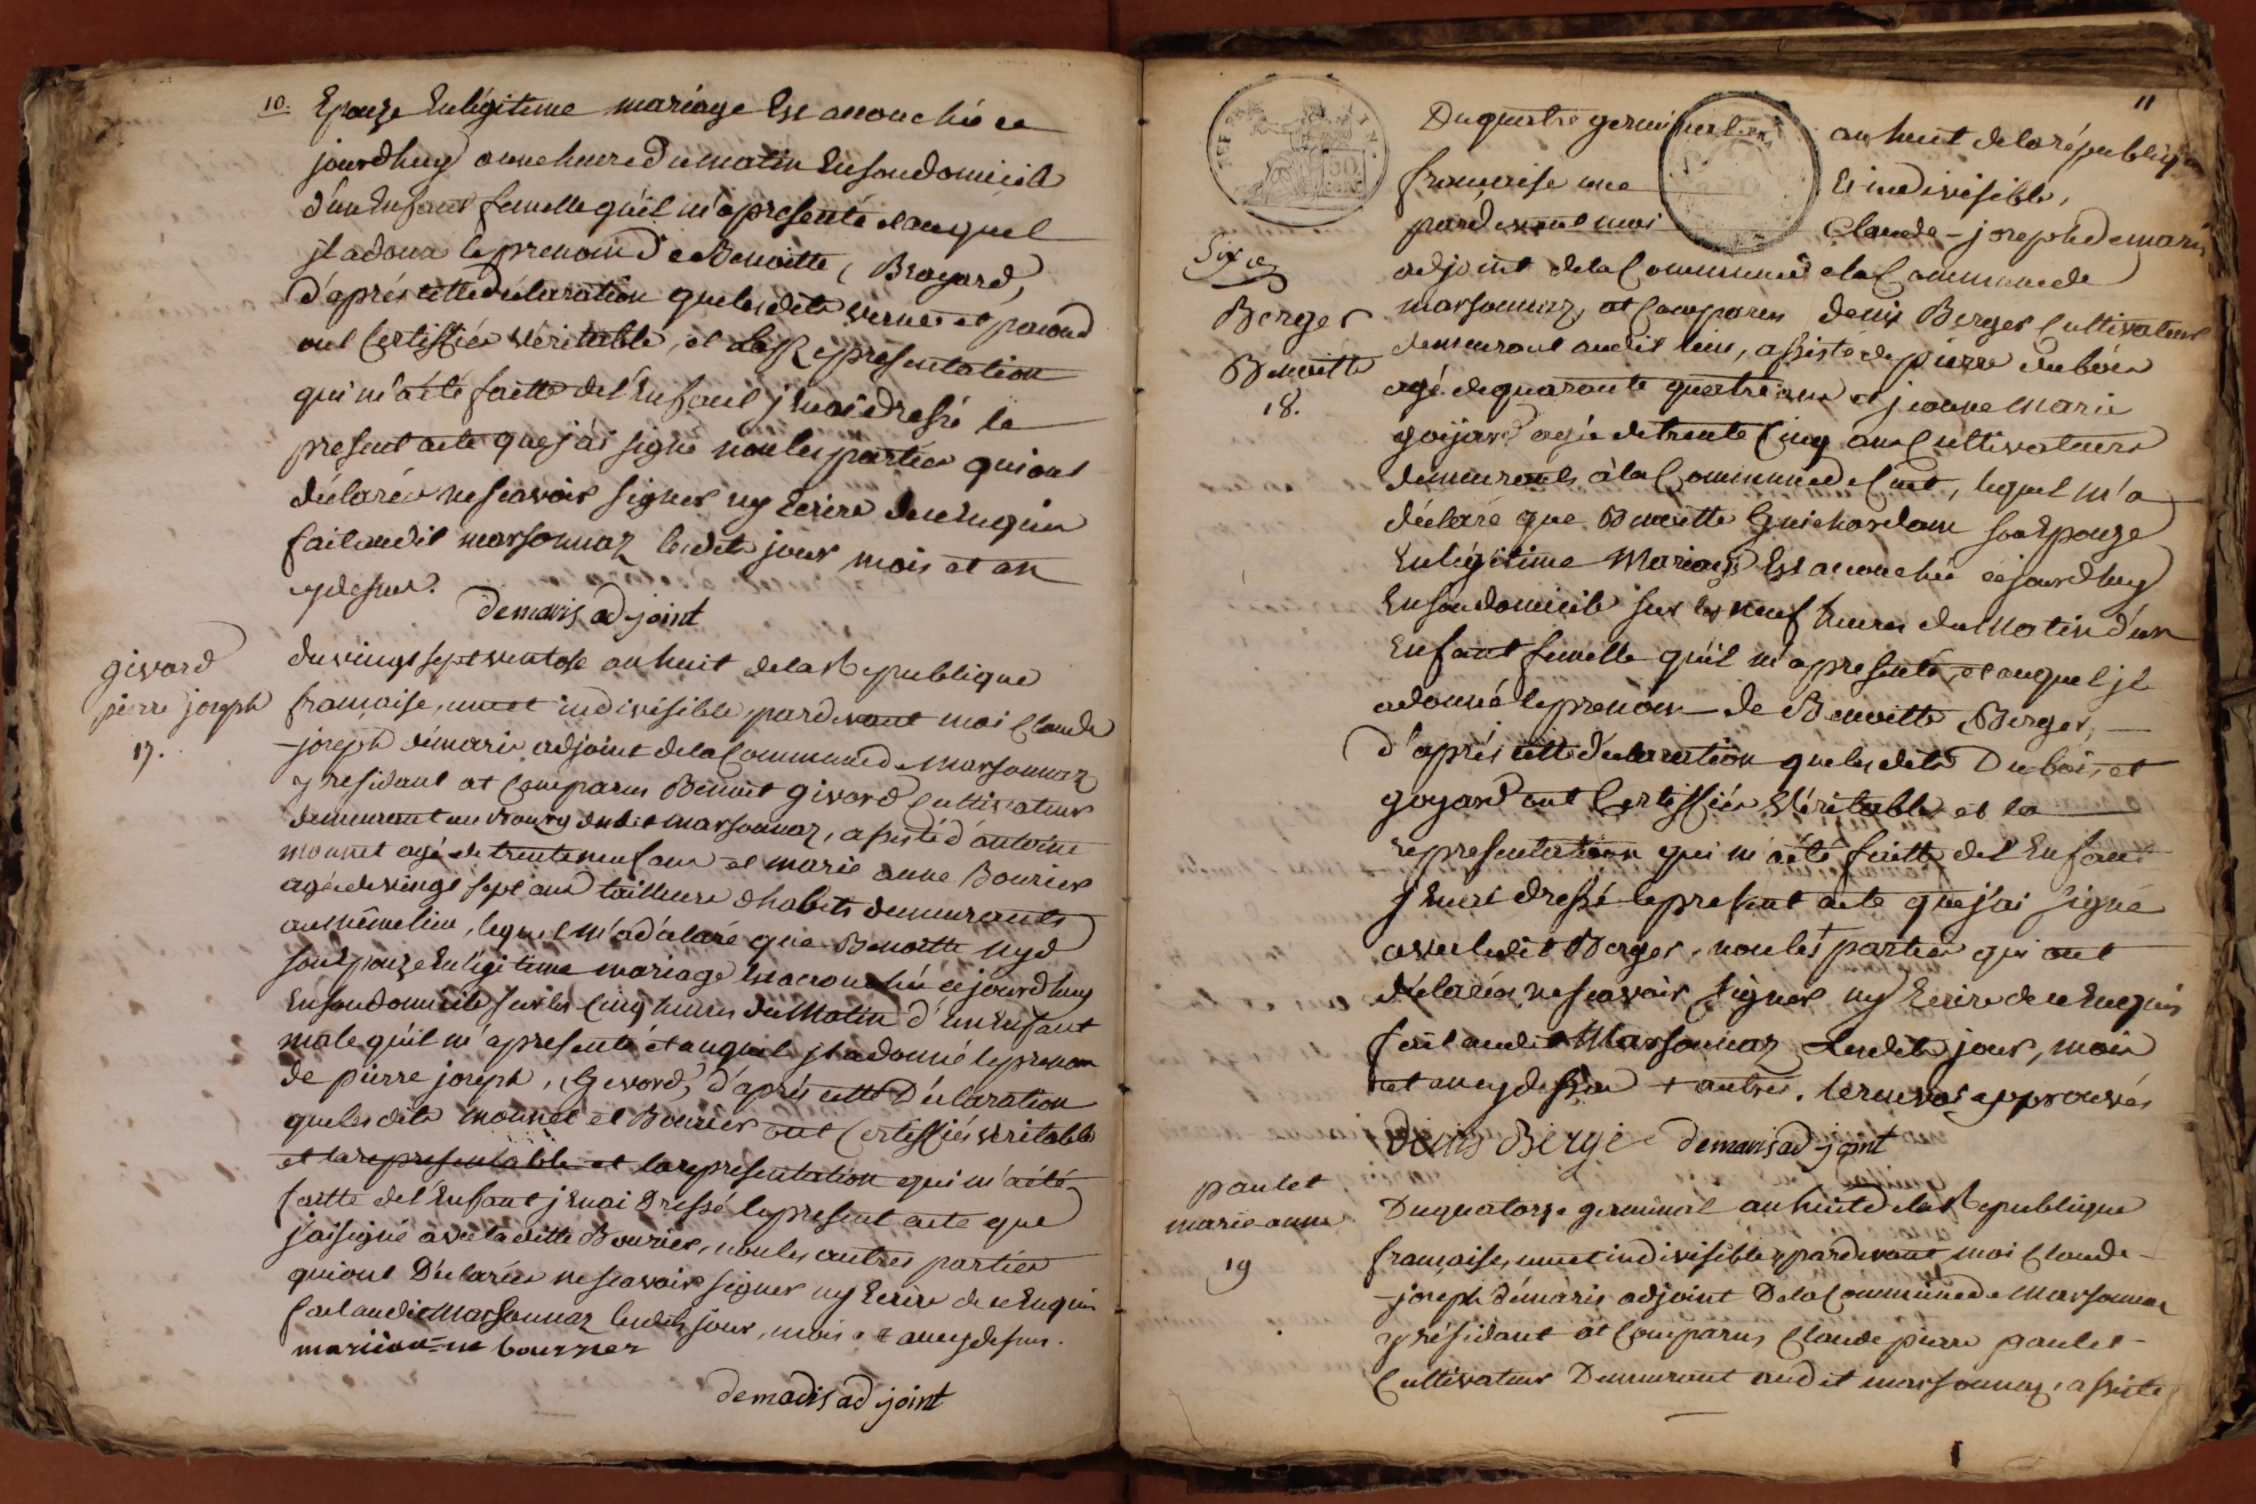 10.
Epouze Enlégitime mariage Est accouchée ce
jourdhuy a une heure Du Matin En son domicile
d'un Enfant femelle quil m'a presenté et auquel
jl a donné le prenom De Benoitte, Broyard,
d'après cette déclaration que lesdits vernes et pacoud
ont Certiffiée véritable, et la Representation
qui m'a été faitte de l'Enfant j'En ai dressé le
present acte que j'ai signé non les parties qui ont
déclarées ne scavoir signer ny Ecrire de ce Enquis
fait audit marsonnaz lesdits jour mois et an
cy dessus.
demaris adjoint
givord
pierre joseph
17.
du vingt sept ventose an huit de la Republique
francaise, une et indivisible, pardevant moi Claude
-joseph démaris adjoint de la Commune de Marsonnaz
y residant at Comparus Benoit givord Cultivateur
demeurant au Bourg dudit Marsonnaz, assisté d'antoine
monnet agé de trente neuf ans et marie anne Bourier
agée de vingt sept ans tailleurs d'habits demeurants
au même lieu, lequel m'a déclaré que Benoitte nyd
son Epouze Enlégitime mariage Est accouchée cejourdhuy
En son domicile sur les Cinq heures du Matin d'un Enfant
male quil m'a presenté et auquel jl a donné le prenom
de pierre joseph, Gevord, d'après cette Déclaration
que lesdits monnet et Bourier ont Certiffiés véritable
et la representable et la representation qui m'a été
faitte de l'Enfant j'En ai Dressé le present acte que
j'ai signé avec laditte Bourier, non les autres parties
qui ont Déclarées ne scavoir signer ny Ecrire de ce Enquis
fait audit Marsonnaz lesdits jour, mois et an cy dessus.
mariian=ne bourrier
demaris adjoint
11
Du quatre germinal an huit de la républiq
francaise une Et indivisible,
pardevant moi Claude-joseph demaris
adjoint de la Commune de la Commune de
marsonnaz, at Comparus denis Berger Cultivateur
demeurant audit lieu, assisté de pierre dubois
agé de quarante quatre ans et jeanne Marie
goijard agée de trente Cinq ans Cultivateurs
demeurants à la Commune de Cuet, lequel m'a
déclaré que Benoitte Guichardon son Epouze
Enlégitime Mariage Est accouchée cejourdhuy
En son domicile sur les neuf heures du Matin d'un
Enfant femelle quil m'a presenté, et auquel jl
a donné le prenom de Benoitte Berger,
d'après cette déclaration que lesdits Dubois et
goyard ont Certiffiée Véritable et la
representation qui m'a été faitte de l'Enfant
j'En ai dressé le present acte que j'ai signé
avec ledit Berger, non les + parties qui ont
déclarées ne scavoir signer ny Ecrire de ce Enquis
fait audit Marsonnaz Lesdits jour, mois
et an cy dessus + autres. le renvoi approuvés
Berger
Benoitte
18.
denis Berge demaris adjoint
paulet
marie anne
19
Du quatorze germinal an huit de la Republique
francaise, une et indivisible, pardevant moi Claude-
-joseph démaris adjoint De la Commune de Marsonnaz
y résidant at Comparus, Claude pierre paulet
Cultivateur Demeurant audit marsonnaz, assisté